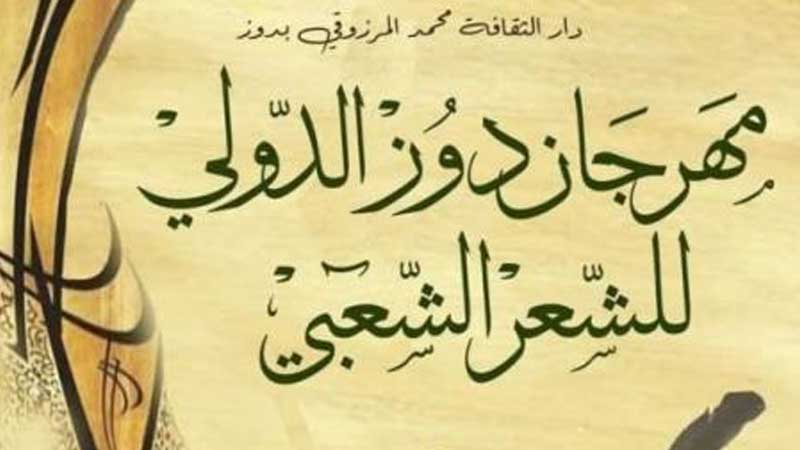 دار الثقافة محمد المرزوقي بدوز
مَهَرجَان دوُزْ الدّولي
للشّعرْ الشّعَبيْ